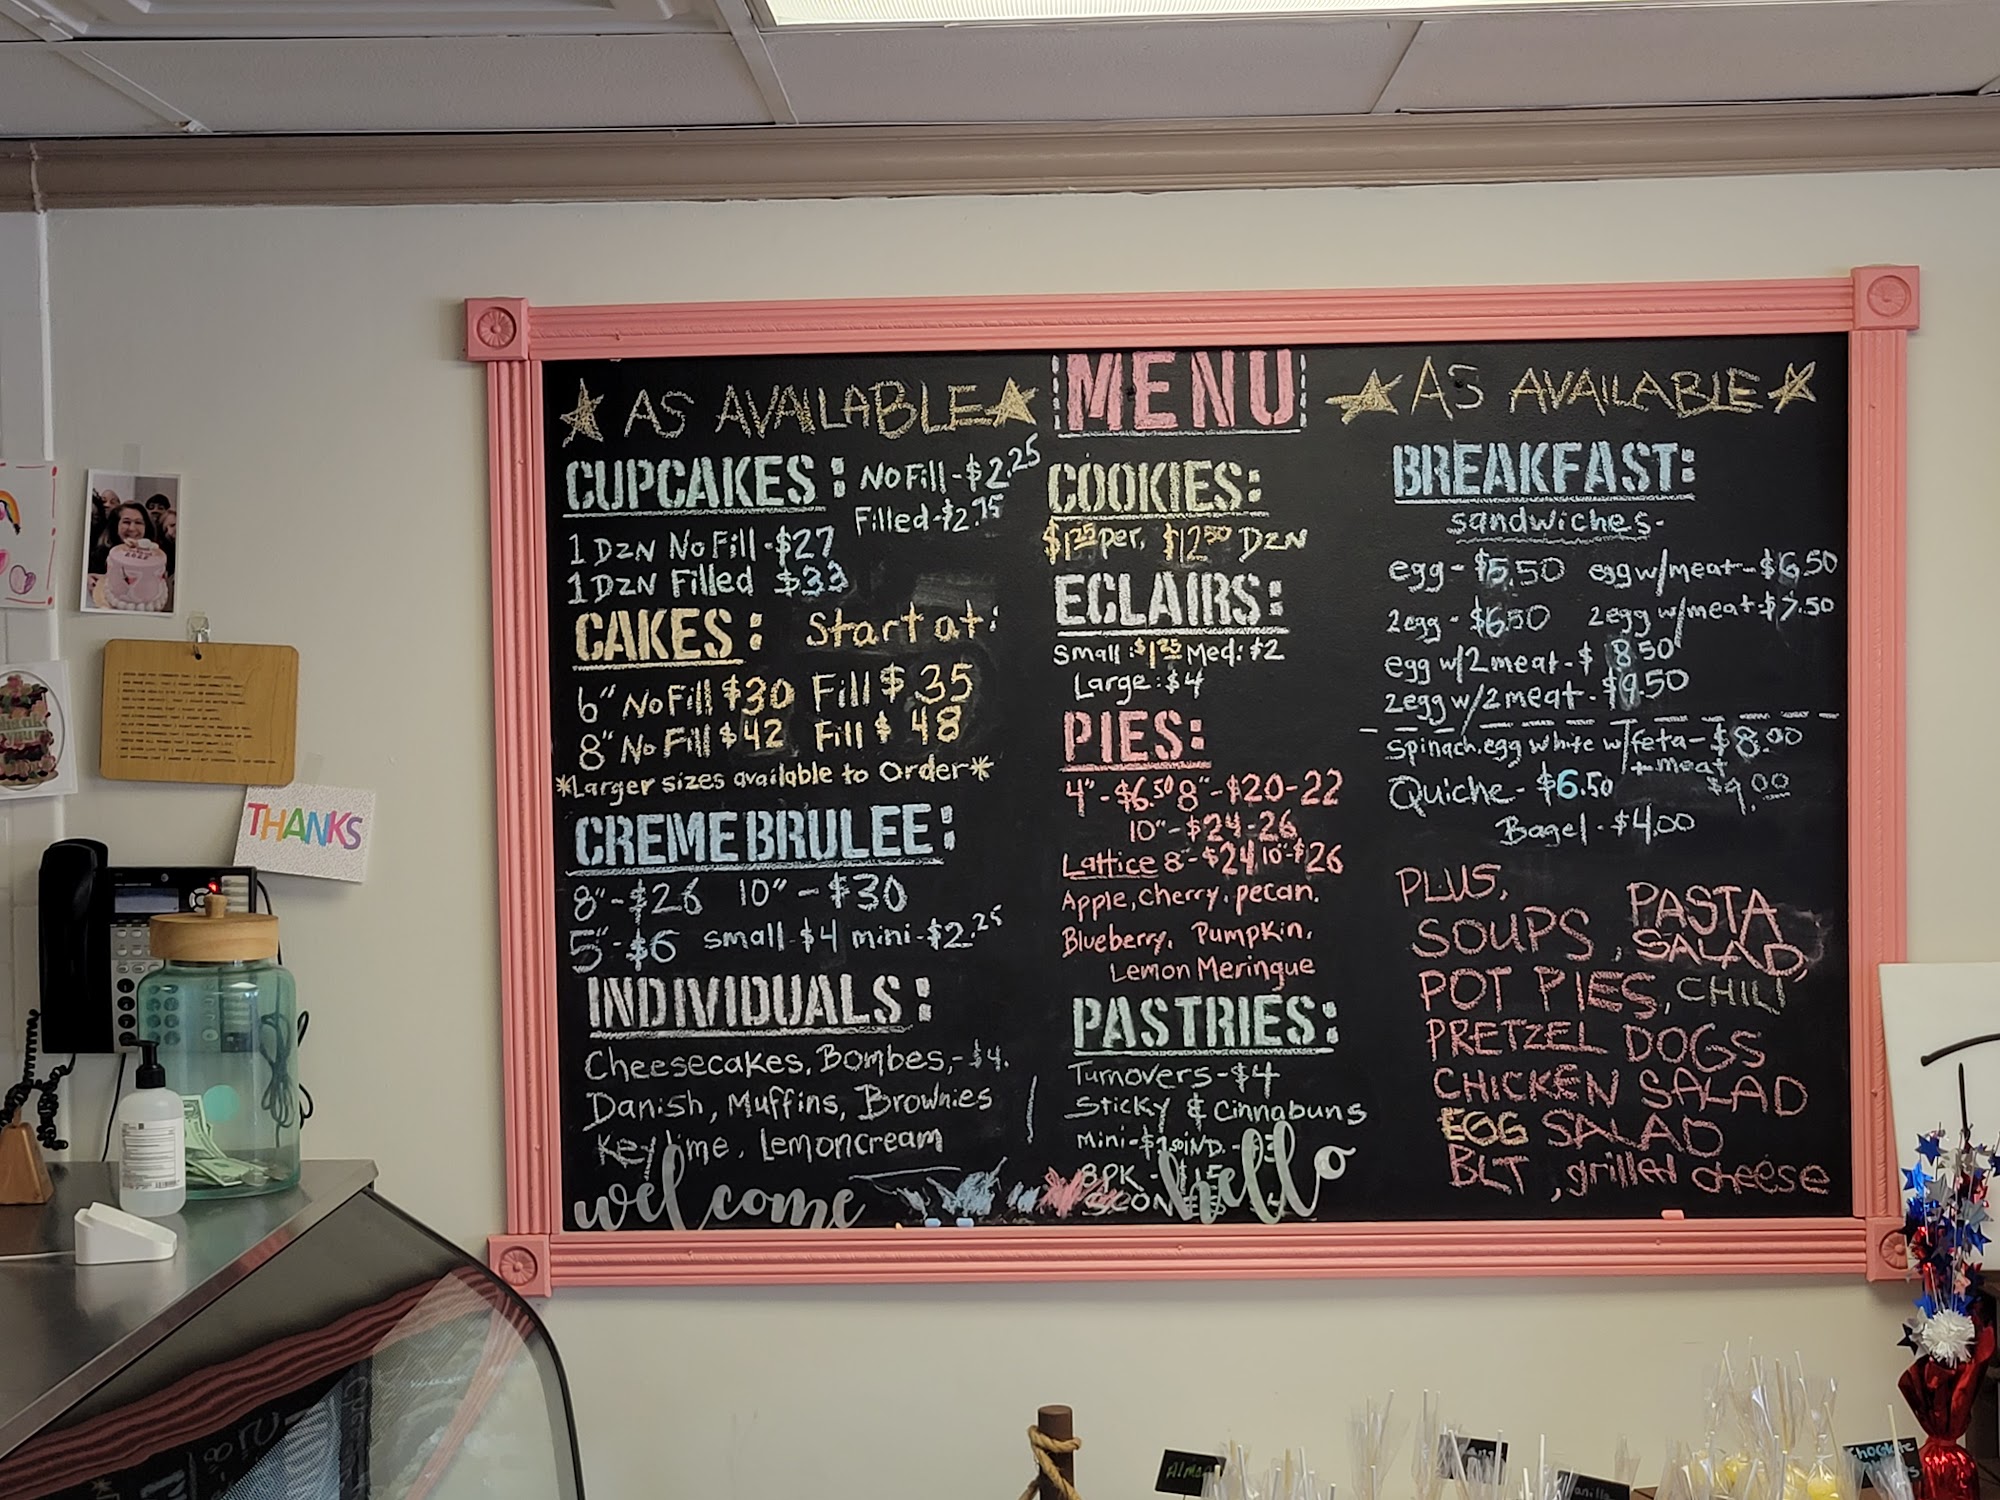 MENU
★ AS AVAILABLE ★
CUPCAKES: No Fill - $2.25
Filled - $2.75
1 DZN No Fill - $27
1 DZN Filled $33
CAKES: Start at:
6" No Fill $30 Fill $35
8" No Fill $42 Fill $48
*Larger sizes available to Order*
CREME BRULEE:
8" - $26 10" - $30
5" - $6 small - $4 mini - $2.25
INDIVIDUALS:
Cheesecakes, Bombes, - $4.
Danish, Muffins, Brownies
Key lime, Lemoncream
welcome
COOKIES:
$1.25 per, $12.50 DZN
ECLAIRS:
Small: $1.25 Med: $2
Large: $4
PIES:
4" - $6.50 8" - $20-22
10" - $24-26
Lattice 8 - $24 10" - $26
Apple, cherry, pecan.
Blueberry, Pumpkin,
Lemon Meringue
PASTRIES:
Turnovers - $4
Sticky & Cinnabuns
Mini - $1.50 IND. - $3
8PK - $15
hello
★ AS AVAILABLE ★
BREAKFAST:
sandwiches -
egg - $5.50 egg w/meat - $6.50
2egg - $6.50 2egg w/meat - $7.50
egg w/2 meat - $8.50
2egg w/2 meat - $9.50
Spinach, egg white w/feta - $8.00
+ meat $9.00
Quiche - $6.50
Bagel - $4.00
PLUS,
SOUPS, PASTA SALAD,
POT PIES, CHILI
PRETZEL DOGS
CHICKEN SALAD
EGG SALAD
BLT, grilled cheese
THANKS